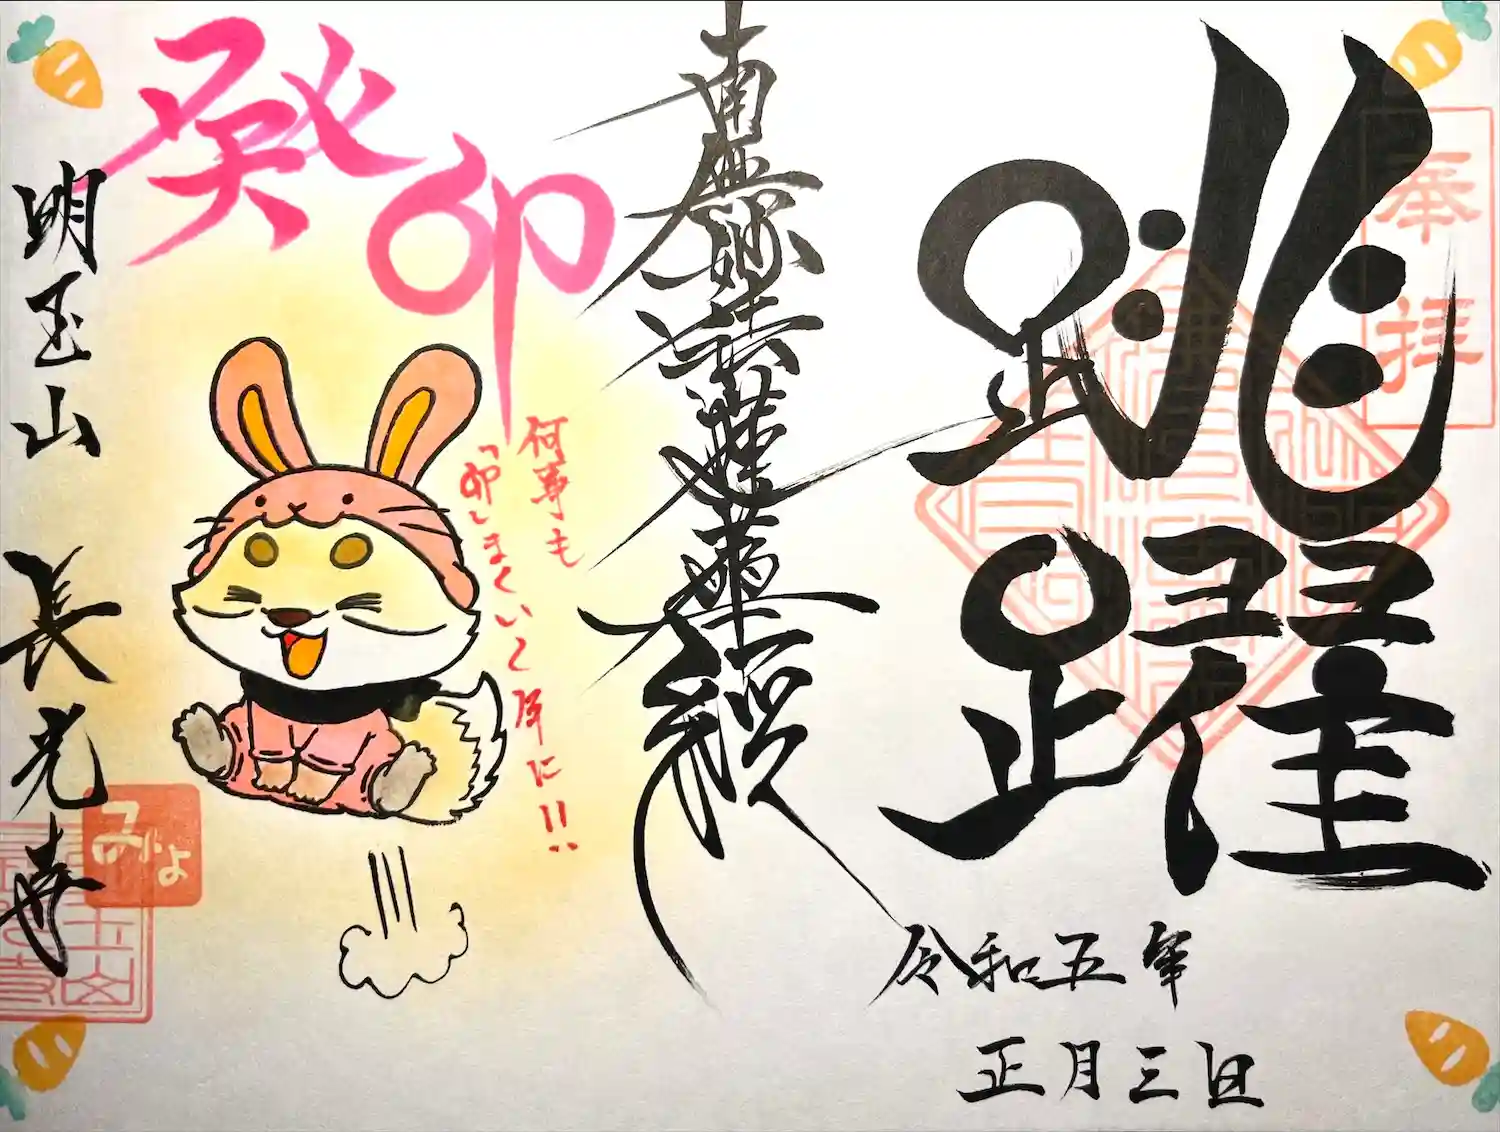 奉拝
跳躍
令和五年
正月三日
南無妙法蓮華経
癸卯
何事も
「卯」まくいく年に!!
明玉山 長光寺
みよ